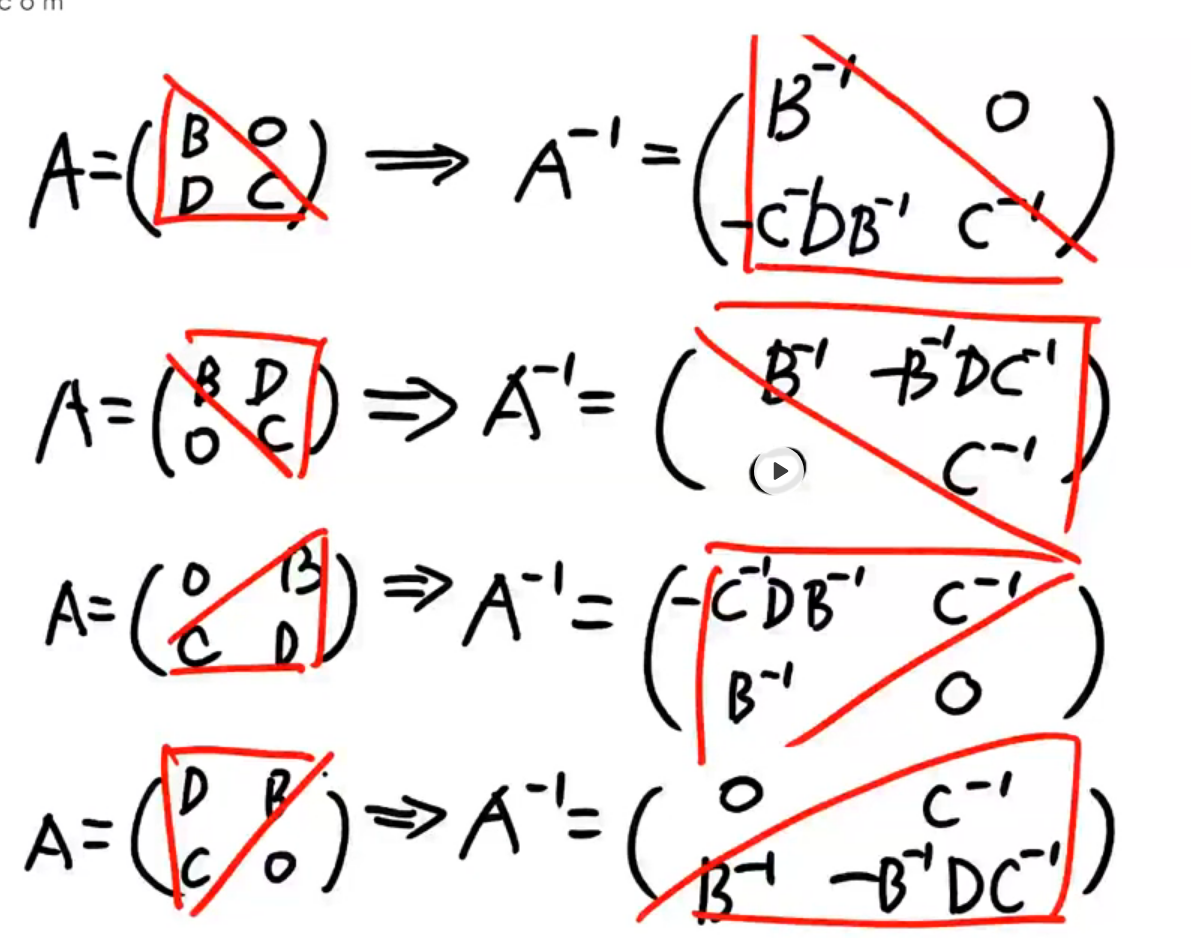 com
A=(B O
D C) ⟹ A⁻¹=(B⁻¹ O
-C⁻¹DB⁻¹ C⁻¹)
A=(B D
O C) ⟹ A⁻¹=(B⁻¹ -B⁻¹DC⁻¹
O C⁻¹)
A=(O B
C D) ⟹ A⁻¹=(-C⁻¹DB⁻¹ C⁻¹
B⁻¹ O)
A=(D B
C O) ⟹ A⁻¹=(O C⁻¹
B⁻¹ -B⁻¹DC⁻¹)